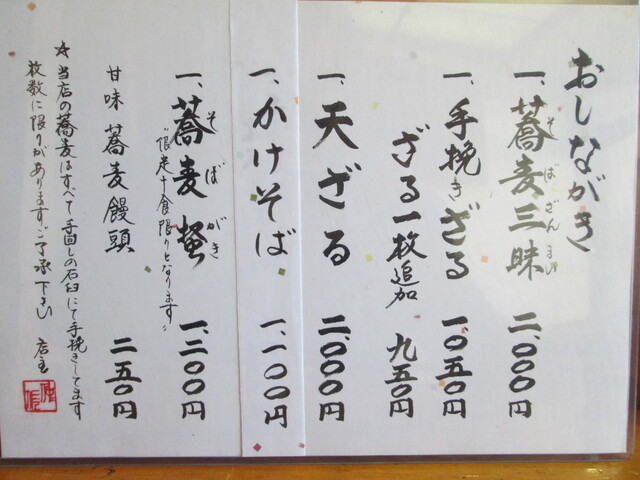 おしながき
一、蕎麦三昧 二、〇〇〇円
そばざんまい
一、手挽きざる 一〇五〇円
ざる一枚追加 九五〇円
一、天ざる 二、〇〇〇円
一、かけそば 一、一〇〇円
一、蕎麦掻 一、三〇〇円
そばがき
"限定十食限りとなります"
甘味 蕎麦饅頭 二五〇円
☆当店の蕎麦はすべて手回しの石臼にて手挽きしてます
枚数に限りがあります。ご了承下さい 店主